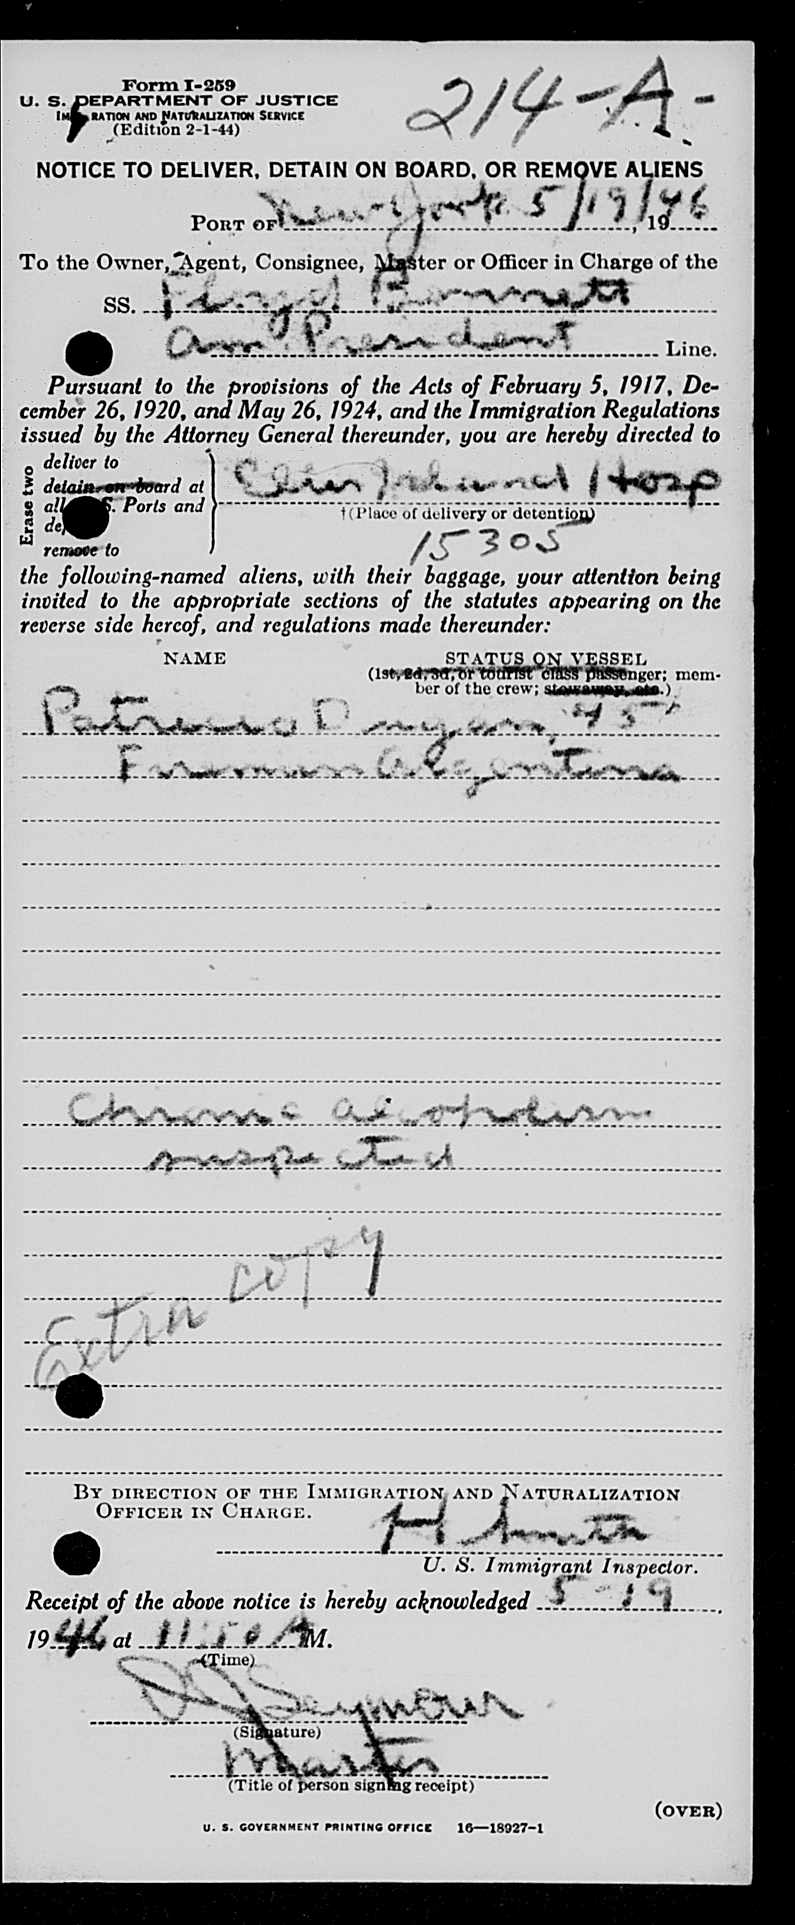 Form I-259
214-A-
U. S. DEPARTMENT OF JUSTICE
IMMIGRATION AND NATURALIZATION SERVICE
(Edition 2-1-44)
NOTICE TO DELIVER, DETAIN ON BOARD, OR REMOVE ALIENS
PORT OF New York 5/19/46, 19
To the Owner, Agent, Consignee, Master or Officer in Charge of the
SS. Floyd Bennett
Am. President Line.
Pursuant to the provisions of the Acts of February 5, 1917, De-
cember 26, 1920, and May 26, 1924, and the Immigration Regulations
issued by the Attorney General thereunder, you are hereby directed to
Erase two
deliver to
detain on board at
all U. S. Ports and
remove to
Ellis Island Hosp
†(Place of delivery or detention)
15305
the following-named aliens, with their baggage, your attention being
invited to the appropriate sections of the statutes appearing on the
reverse side hereof, and regulations made thereunder:
NAME
STATUS ON VESSEL
(1st, 2d, 3d, or tourist class passenger; mem-
ber of the crew; stowaway, etc.)
Patricio Dungan, "45"
Fireman Argentina
Chronic alcoholism
suspected
Extra copy
BY DIRECTION OF THE IMMIGRATION AND NATURALIZATION
OFFICER IN CHARGE.
H Smith
U. S. Immigrant Inspector.
Receipt of the above notice is hereby acknowledged 5-19,
1946 at 11:50 AM.
(Time)
D J Seymour
(Signature)
Master
(Title of person signing receipt)
(OVER)
U. S. GOVERNMENT PRINTING OFFICE 16—18927-1